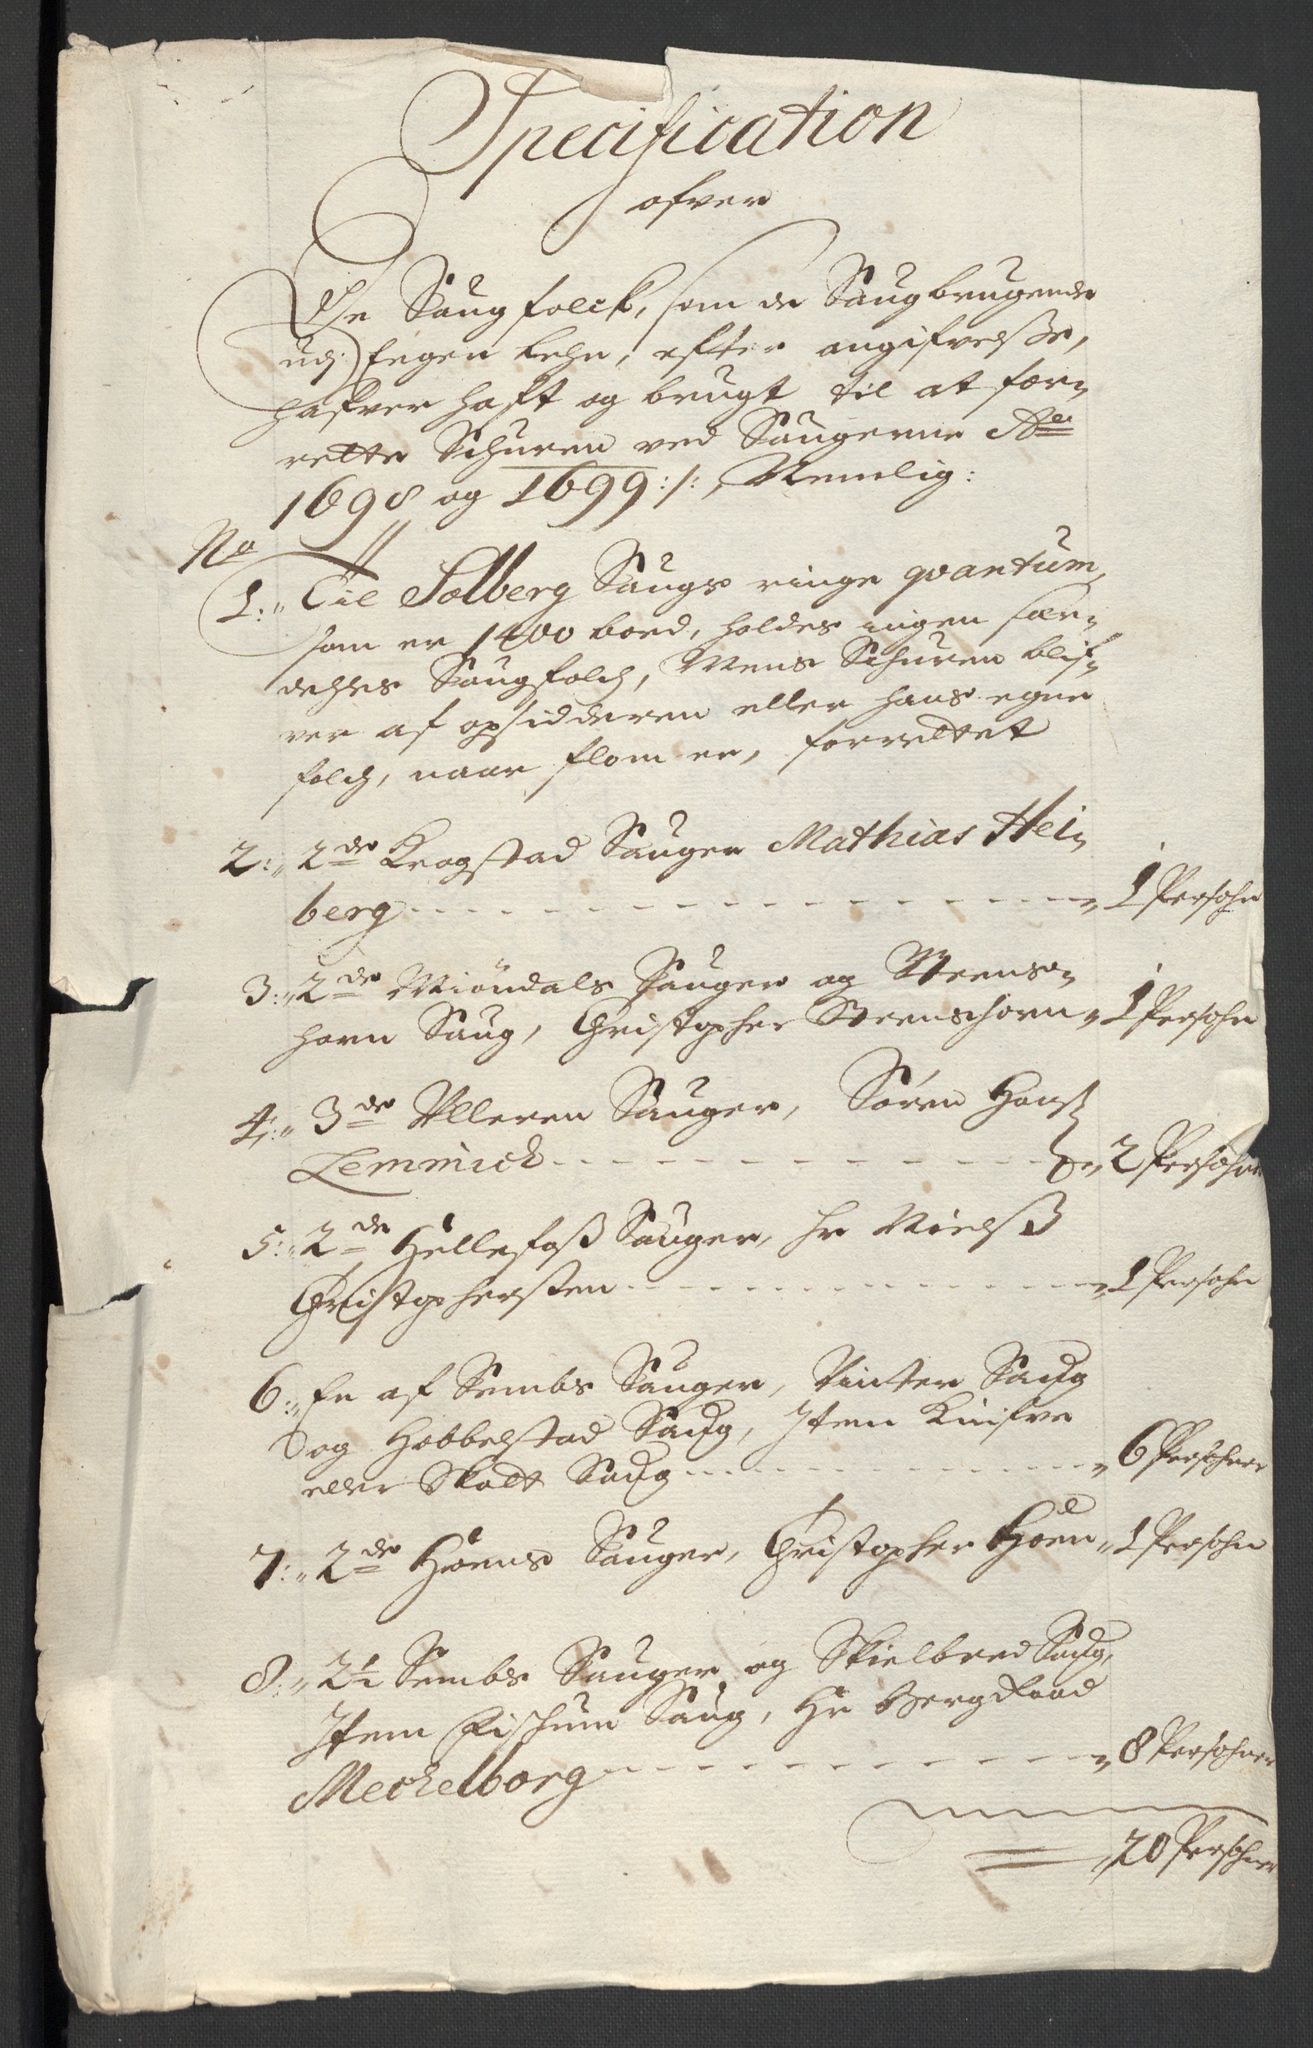 Specification
ofver
De Saugfolck, som de Saugbrugende
udj Eegen Lehn, efter angifvelsse,
hafver haft og brugt til at for¬
rette Schuren ved Saugerne Ao
1698 og 1699:/: Nemlig:
No
1: Til Solberg Saugs ringe qvantum,
som er 1400 bord, holdes ingen sær¬
dehles Saugfolch, Mens Schuren blif¬
ver af opsidderen eller hans egne
folch, naar flom er, forrettet
2: 2de Krogstad Sauger Mathias Hei¬
berg - - - 1 Persohn
3: 2de Miöndals Sauger og Steens¬
horn Saug, Christopher Steenshorn 1 Persohn
4: 3de Ulleren Sauger, Sören Hanß
Lemmich - - - 2 Persohner
5: 2de Hellefoß Sauger, Hr Nielß
Christophersten - - - 1 Persohn
6: En af Sembs Sauger, Vinter Saug
og Hobbelstad Saug, Item Knifve
eller Skodt Saug - - - 6 Persohner
7: 2de Hoens Sauger, Christopher Hoen 1 Persohn
8: 2½ Sembs Sauger og Skielbred Saug,
Item Fischum Saug, Hr Bergraad
Mechelborg - - - 8 Persohner
20 Persohner